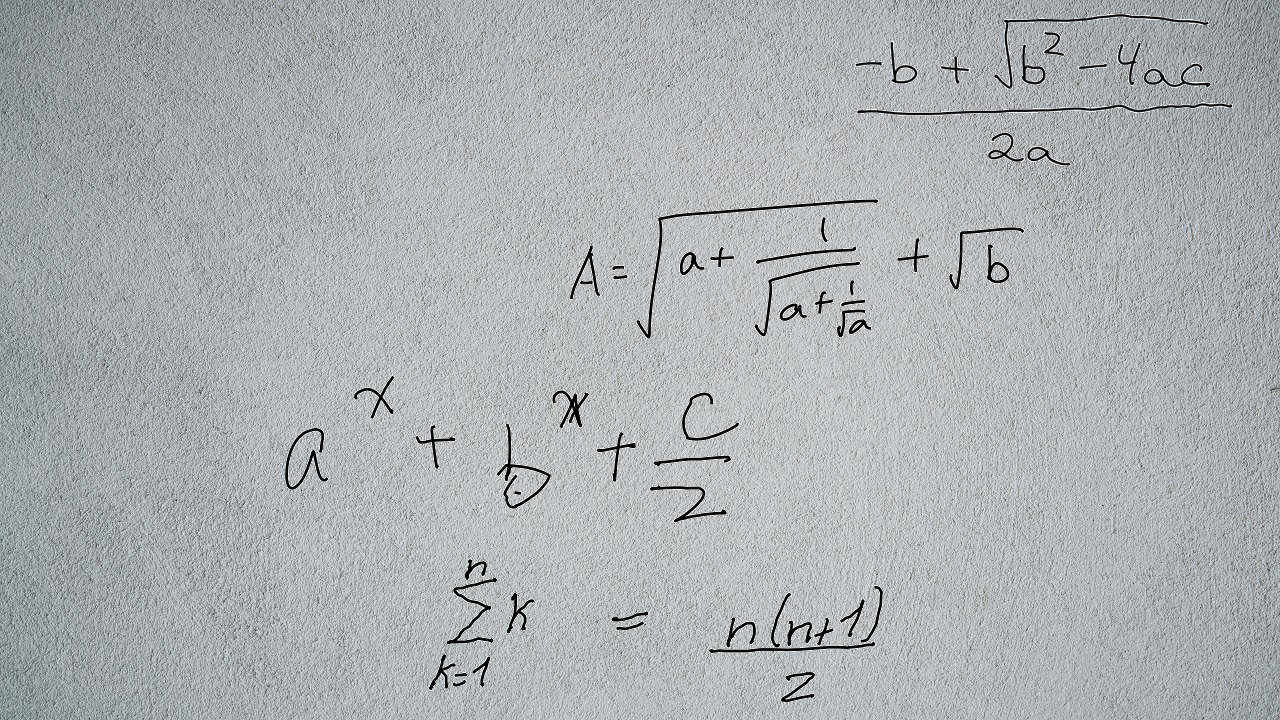 \frac{-b + \sqrt{b^2 - 4ac}}{2a}
A = \sqrt{a + \frac{1}{\sqrt{a + \frac{1}{\sqrt{a}}}}} + \sqrt{b}
a^x + b^x + \frac{c}{2}
\sum_{k=1}^{n} k = \frac{n(n+1)}{2}